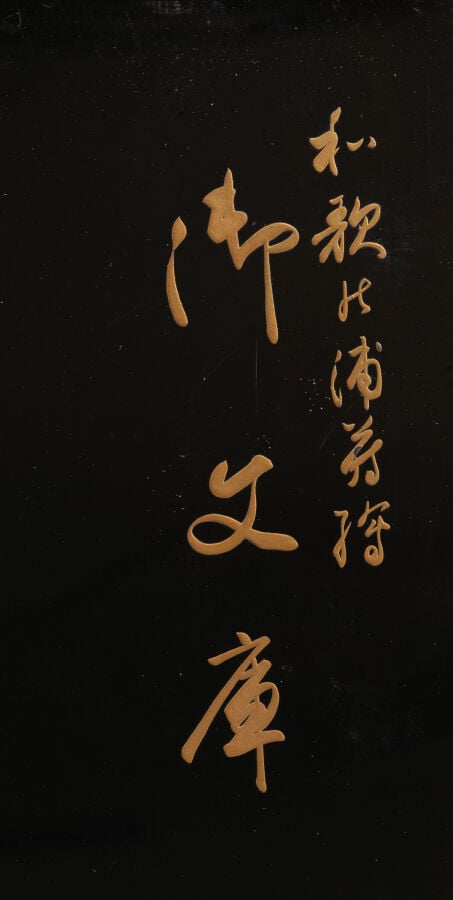 和歌の浦蒔繪
御文庫